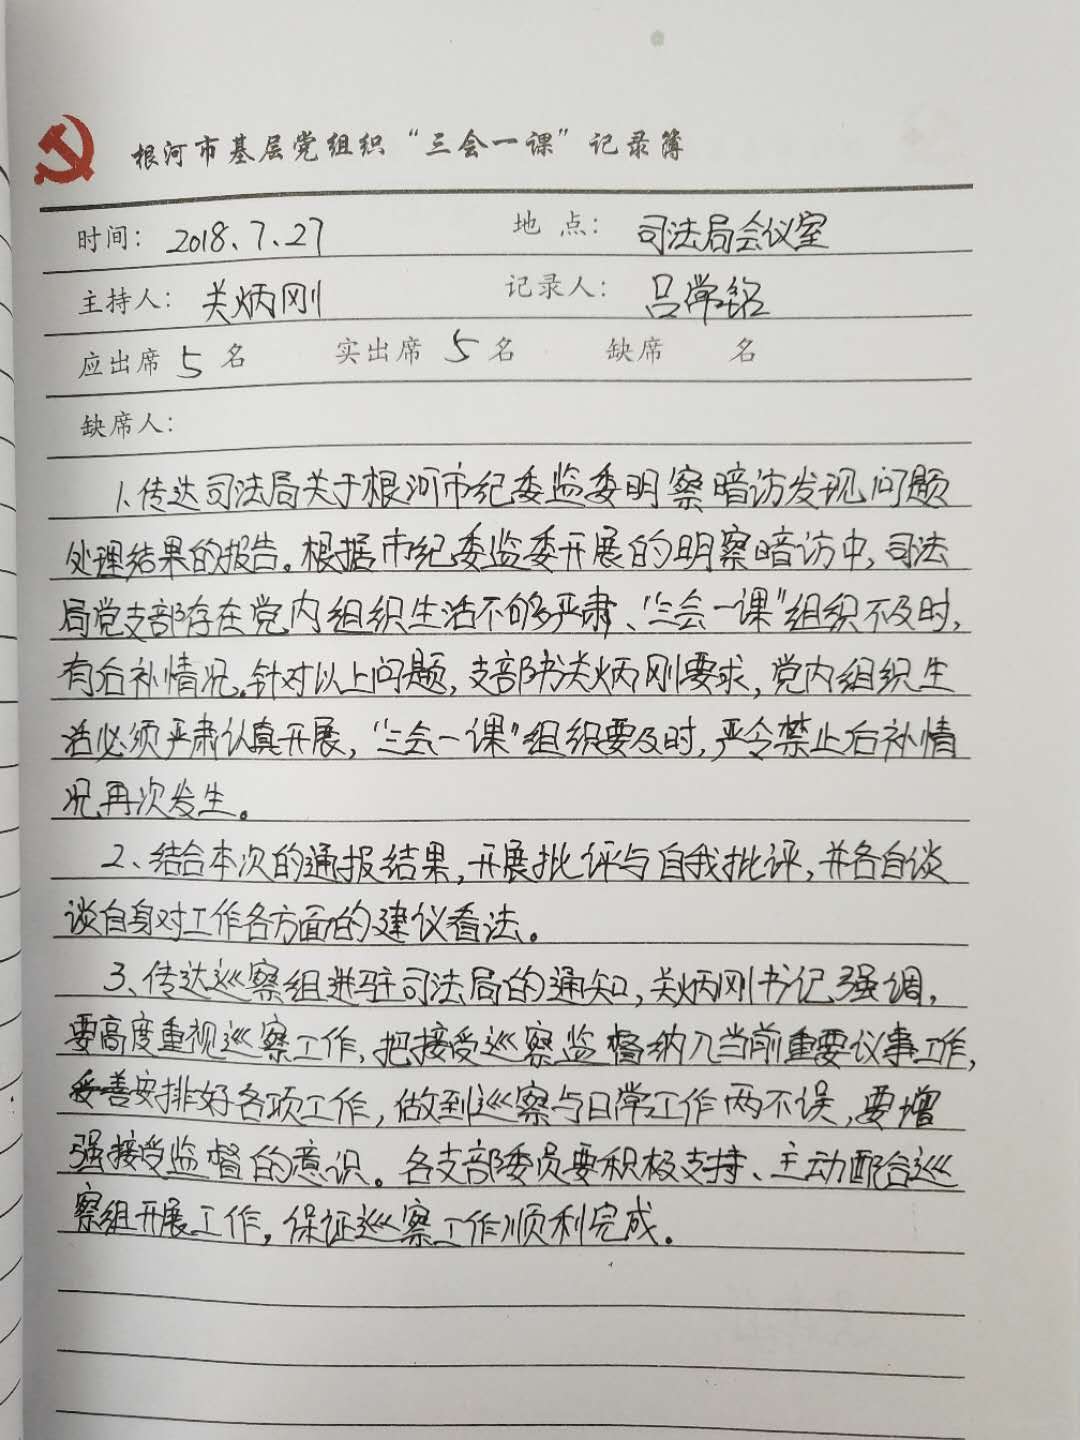 根河市基层党组织“三会一课”记录簿
时间：2018、7、27 地点：司法局会议室
主持人：关炳刚 记录人：吕常铭
应出席5名 实出席5名 缺席 名
缺席人：
1、传达司法局关于根河市纪委监委明察暗访发现问题
处理结果的报告。根据市纪委监委开展的明察暗访中，司法
局党支部存在党内组织生活不够严肃、“三会一课”组织不及时，
有后补情况。针对以上问题，支部书关炳刚要求，党内组织生
活必须严肃认真开展，“三会一课”组织要及时，严令禁止后补情
况再次发生。
2、结合本次的通报结果，开展批评与自我批评，并各自谈
谈自身对工作各方面的建议看法。
3、传达巡察组进驻司法局的通知，关炳刚书记强调，
要高度重视巡察工作，把接受巡察监督纳入当前重要议事工作，
妥善安排好各项工作，做到巡察与日常工作两不误，要增
强接受监督的意识。各支部委员要积极支持、主动配合巡
察组开展工作，保证巡察工作顺利完成。